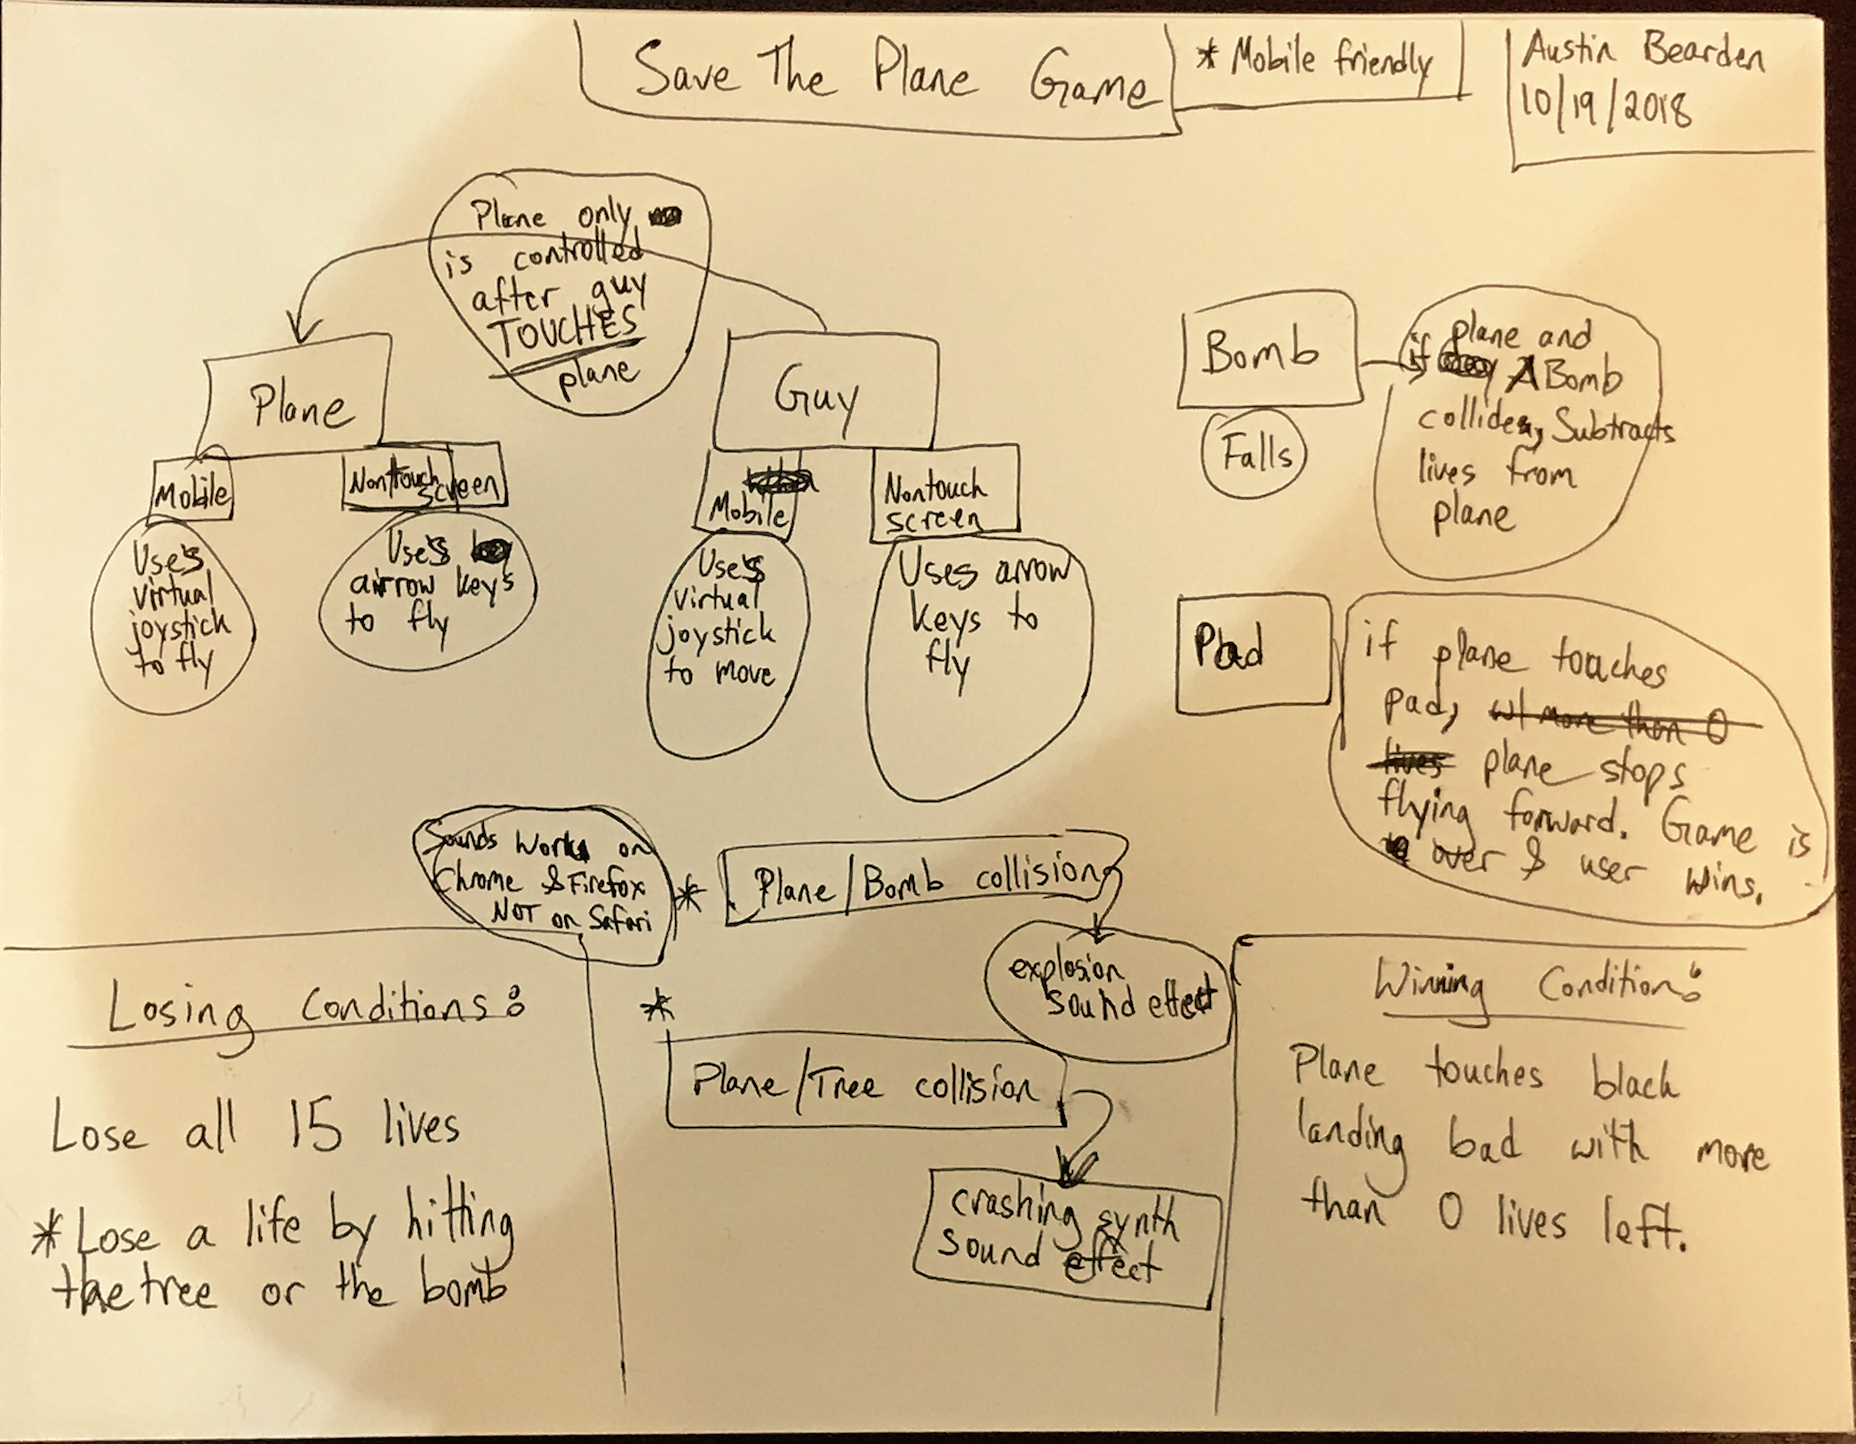 Save The Plane Game
* Mobile friendly
Austin Bearden
10/19/2018
Plane only
is controlled
after guy
TOUCHES
plane
Plane
Mobile
Use's
virtual
joystick
to fly
Nontouch
screen
Use's
airrow keys
to fly
Guy
Mobile
Use's
virtual
joystick
to move
Nontouch
screen
Uses arrow
keys to
fly
Bomb
Falls
if plane and
Bomb
collides, Subtracts
lives from
plane
Pad
if plane touches
pad, w/ more than 0
lives plane stops
flying forward. Game is
over & user wins.
Sounds Works on
Chrome & Firefox
NOT on Safari
* Plane/Bomb collision
explosion
sound effect
*
Plane/Tree collision
crashing synth
sound effect
Losing Conditions:
Lose all 15 lives
* Lose a life by hitting
the tree or the bomb
Winning Condition:
Plane touches black
landing bad with more
than 0 lives left.